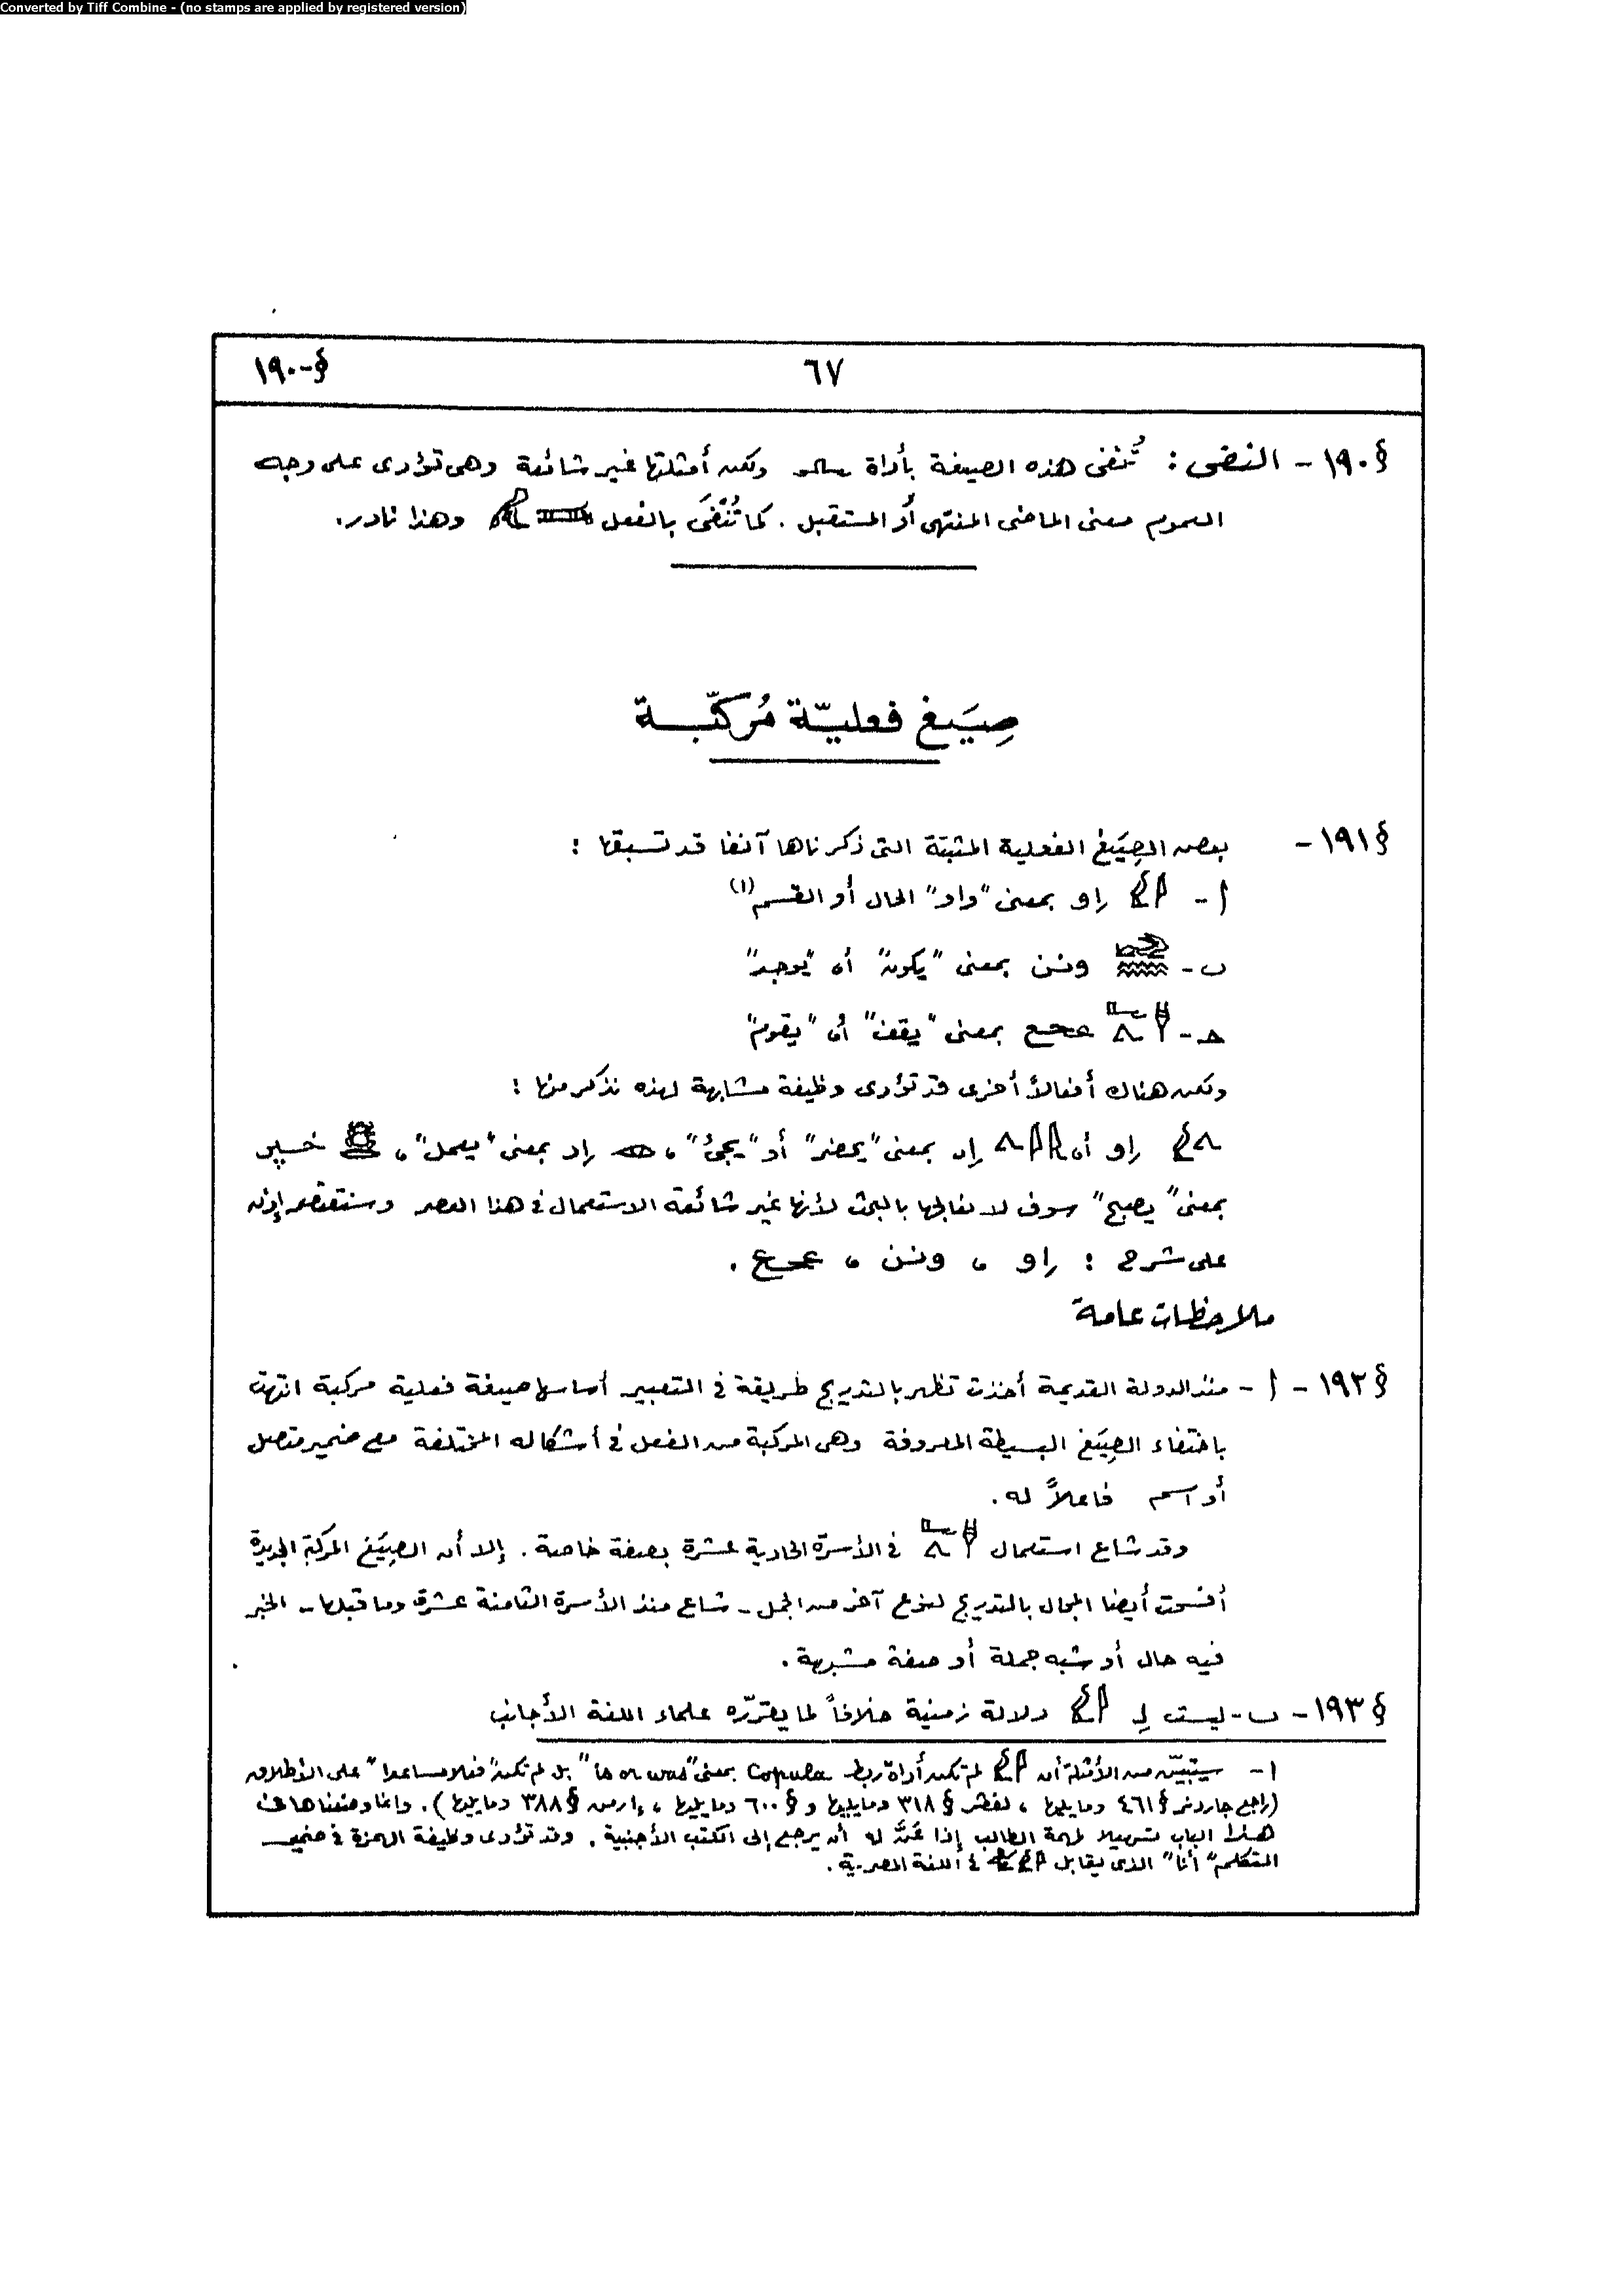 Converted by Tiff Combine - (no stamps are applied by registered version)
§-١٩٠ ٦٧
§١٩٠- النفى : تُنفى هذه الصيغة بأداة ولكن أمثلتها غير شائعة وهى تؤدى على وجه
العموم معنى الماضى المنتهى أو المستقبل . كما تُنْفَى بالفعل وهذا نادر.
صِيَغ فعليّة مُركّبة
§١٩١- بعض الصِيَغ الفعلية المثبتة التى ذكرناها آنفا قد تسبقها :
أ - 𓇋𓅱 إو بمعنى "واو" الحال أو القسم (١)
ب - ونن بمعنى "يكون" أو "يوجد"
حـ - عحع بمعنى "يقف" أو "يقوم"
ولكن هناك أفعالاً أخرى قد تؤدى وظيفة مشابهة لهذه نذكر منها :
إو أو إى بمعنى "يحضر" أو "يجئ" ، إر بمعنى "يعمل" ، خپر
بمعنى "يصبح" سوف لا نعالجها بالبحث لأنها غير شائعة الاستعمال فى هذا العصر وسنقتصر إذن
على شرح : إو ، ونن ، عحع .
ملاحظات عامة
§١٩٢- أ - منذ الدولة القديمة أخذت تظهر بالتدريج طريقة فى التعبير أساسها صيغة فعلية مركبة انتهت
باختفاء الصِيَغ البسيطة المعروفة وهى المركبة من الفعل فى أشكاله المختلفة مع ضمير متصل
أو اسم فاعلاً له .
وقد شاع استعمال فى الأسرة الحادية عشرة بصفة خاصة . إلا أن الصِيَغ المركبة الجديدة
أفسحت أيضا المجال بالتدريج لنوع آخر من الجمل - شاع منذ الأسرة الثامنة عشرة وما قبلها - الخبر
فيه حال أو شبه جملة أو صفة مشبهة .
§١٩٣- ب - ليست لِـ 𓇋𓅱 دلالة زمنية خلافاً لما يقرّره علماء اللغة الأجانب
١ - سيتبيّن من الأمثلة أن 𓇋𓅱 لم تكن أداة ربط Copula بمعنى "is or was" بل لم تكن "فعلا مساعدا" على الإطلاق
(راجع جاردنر §٤٦١ وما يليها ، لفڤر §٣١٨ وما يليها و §٦٠٠ وما يليها ، إرمن §٣٨٨ وما يليها) . وإنما وضعناها فى
هذا الباب تسهيلا لمهمة الطالب إذا عَنَّ له أن يرجع إلى الكتب الأجنبية . وقد تؤدى وظيفة الهمزة فى ضمير
المتكلم "أنا" الذى يقابل فى اللغة المصرية .